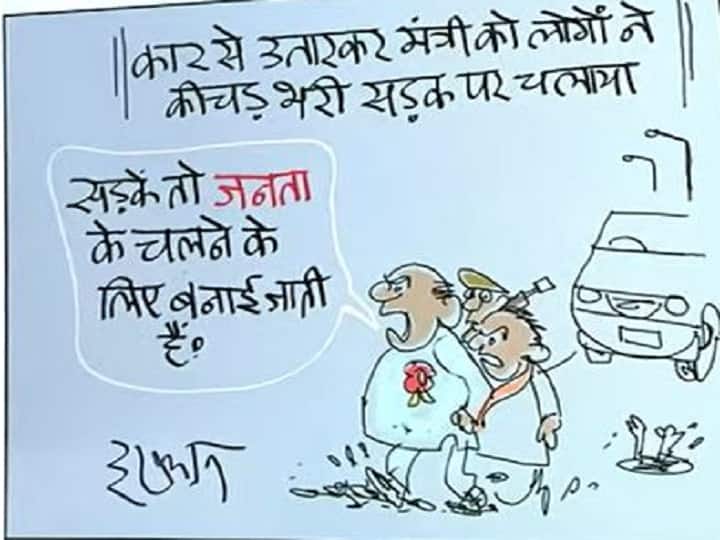 कार से उतारकर मंत्री को लोगों ने
कीचड़ भरी सड़क पर चलाया
सड़कें तो जनता
के चलने के
लिए बनाई जाती
हैं॰